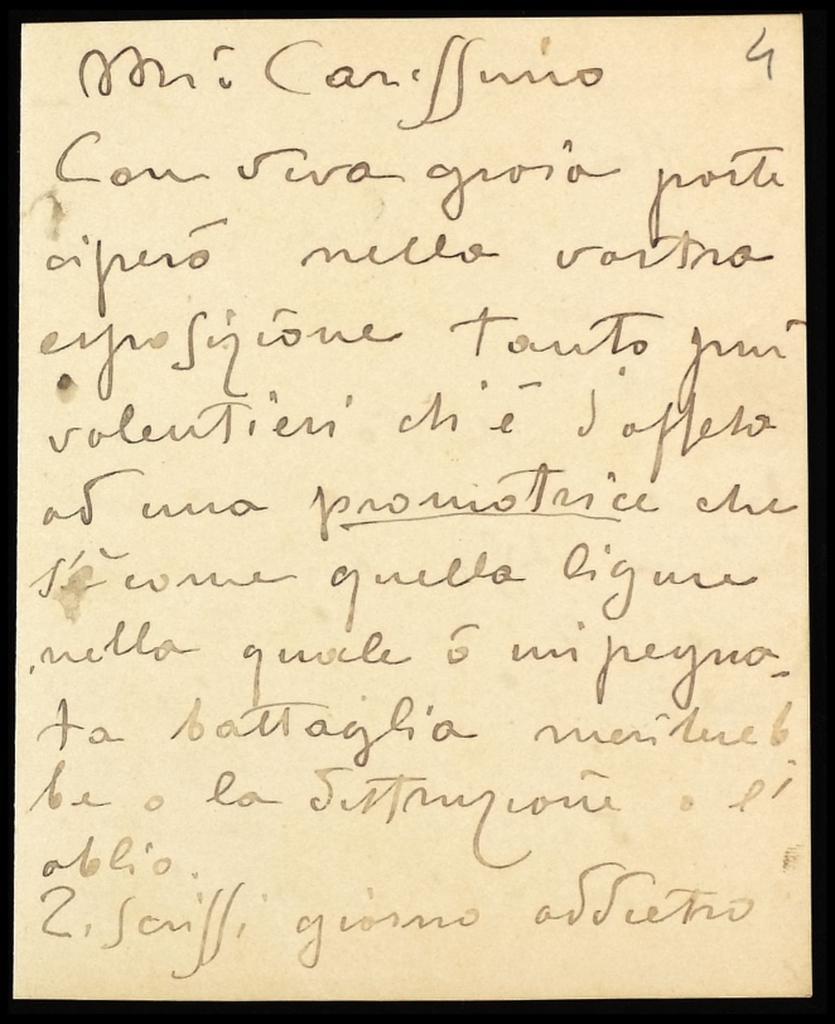 4
Miei Carissimo
Con viva gioia parte
ciperò nella vostra
esposizione tanto più
volentieri ch'è d'offesa
ad una promotrice che
s'è come quella ligure
nella quale ò impegna-
ta battaglia meritereb
be o la distruzione o l'
oblio.
scrissi giorno addietro